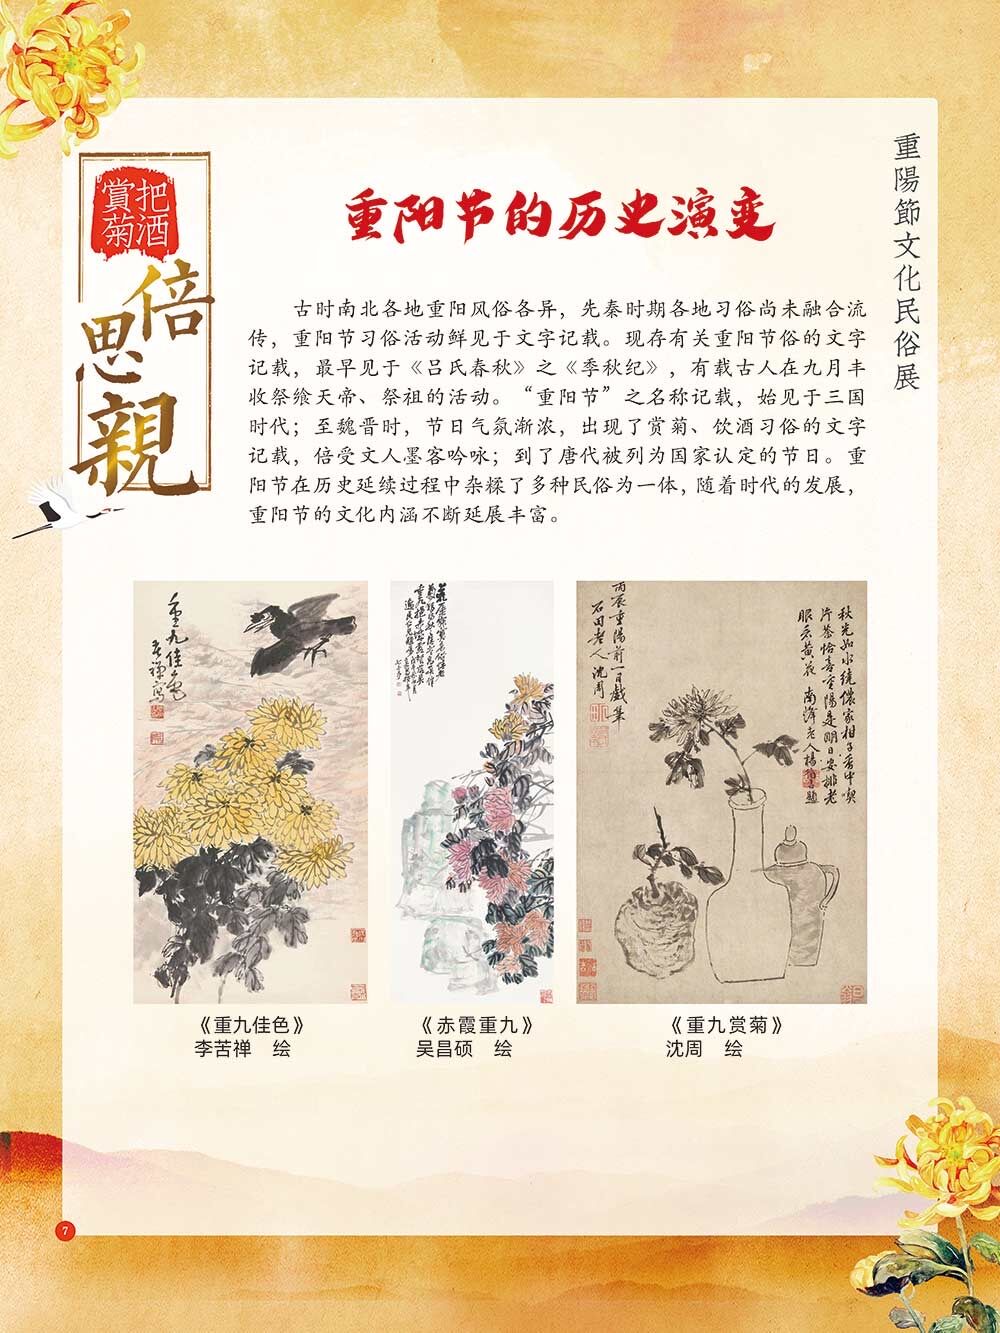 重陽節文化民俗展
把酒
賞菊
倍
思
親
重阳节的历史演变
古时南北各地重阳风俗各异，先秦时期各地习俗尚未融合流
传，重阳节习俗活动鲜见于文字记载。现存有关重阳节俗的文字
记载，最早见于《吕氏春秋》之《季秋纪》，有载古人在九月丰
收祭飨天帝、祭祖的活动。“重阳节”之名称记载，始见于三国
时代；至魏晋时，节日气氛渐浓，出现了赏菊、饮酒习俗的文字
记载，倍受文人墨客吟咏；到了唐代被列为国家认定的节日。重
阳节在历史延续过程中杂糅了多种民俗为一体，随着时代的发展，
重阳节的文化内涵不断延展丰富。
重九佳色
苦禅寫
丙辰重陽前一日戲筆
石田老人沈周
秋光如水繞儂家相子
片茶恰喜重陽是明日安排老
眼看黄花
《重九佳色》
李苦禅 绘
《赤霞重九》
吴昌硕 绘
《重九赏菊》
沈周 绘
7